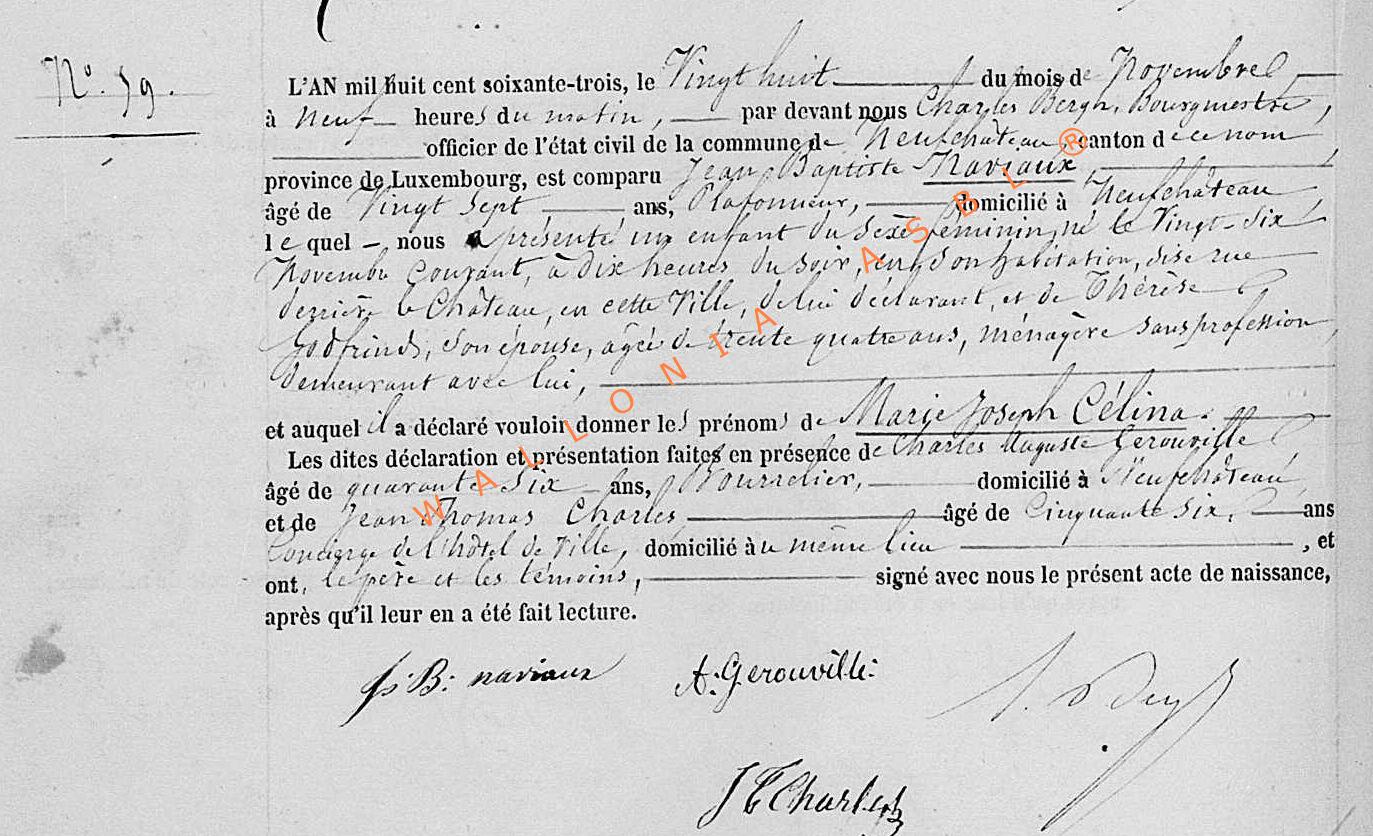 N° 59.
L'AN mil huit cent soixante-trois, le Vingt huit du mois de Novembre
à Neuf heures du matin, par devant nous Charles Bergh, Bourgmestre,
officier de l'état civil de la commune de Neufchâteau, canton de ce nom
province de Luxembourg, est comparu Jean Baptiste Naviaux,
âgé de Vingt Sept, ans, Plafonneur, domicilié à Neufchâteau
lequel, nous a présenté un enfant du Sexe féminin, né le Vingt-Six
Novembre Courant, à dix heures du soir, en son habitation, sise rue
derrière le Château, en cette Ville, de lui déclarant, et de Thérèse
Godfrind, son épouse, agée de trente quatre ans, ménagère sans profession,
demeurant avec lui,
et auquel il a déclaré vouloir donner les prénoms de Marie Joseph Célina.
Les dites déclaration et présentation faites en présence de Charles Auguste Gerouville
âgé de quarante Six ans, Bourrelier, domicilié à Neufchâteau,
et de Jean Thomas Charles, âgé de Cinquante Six, ans
Concierge de l'hôtel de Ville, domicilié au même lieu, et
ont, le père et les témoins, signé avec nous le présent acte de naissance,
après qu'il leur en a été fait lecture.
B: naviaux A: Gerouville:
J T Charles
WALLONIA ASBL ®